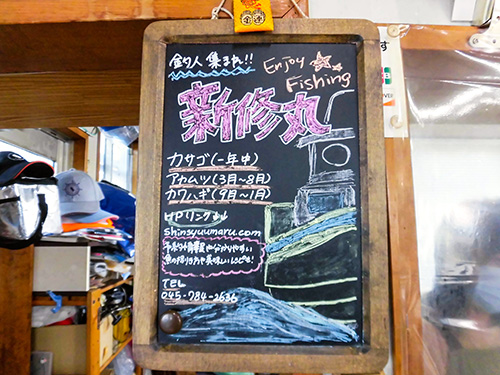 金運
釣り人 集まれ!!
Enjoy
Fishing
新修丸
カサゴ(一年中)
アカムツ(3月〜8月)
カワハギ(9月〜1月)
HPリンク
shinsyuumaru.com
TEL
045-784-2636